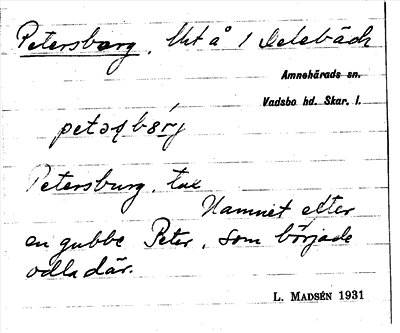 Petersborg, Utå / Delebäck
Amnehärads sn.
Vadsbo hd. Skar. l.
Petersburg, tax
Namnet efter
en gubbe Peter, som började
odla där.
L. MADSÉN 1931